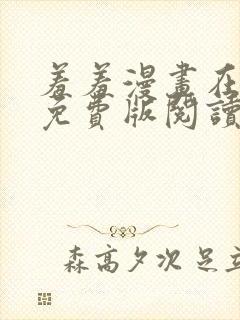 羞羞漫畫在
免費版閱讀
森高夕次 足立